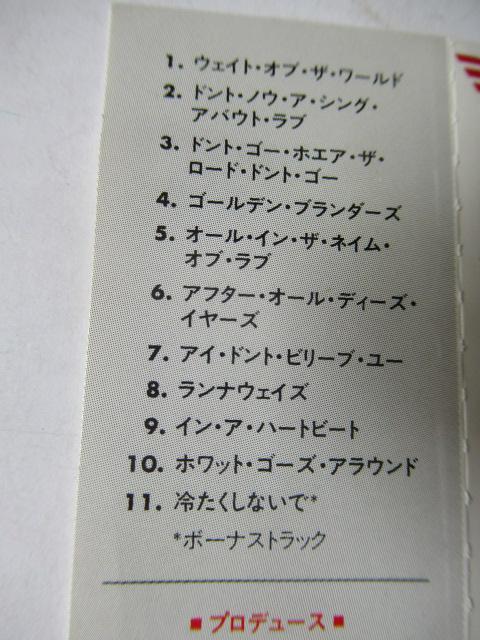 1. ウェイト・オブ・ザ・ワールド
2. ドント・ノウ・ア・シング・
アバウト・ラブ
3. ドント・ゴー・ホエア・ザ・
ロード・ドント・ゴー
4. ゴールデン・ブランダーズ
5. オール・イン・ザ・ネイム・
オブ・ラブ
6. アフター・オール・ディーズ・
イヤーズ
7. アイ・ドント・ビリーブ・ユー
8. ランナウェイズ
9. イン・ア・ハートビート
10. ホワット・ゴーズ・アラウンド
11. 冷たくしないで*
*ボーナストラック
■ プロデュース ■